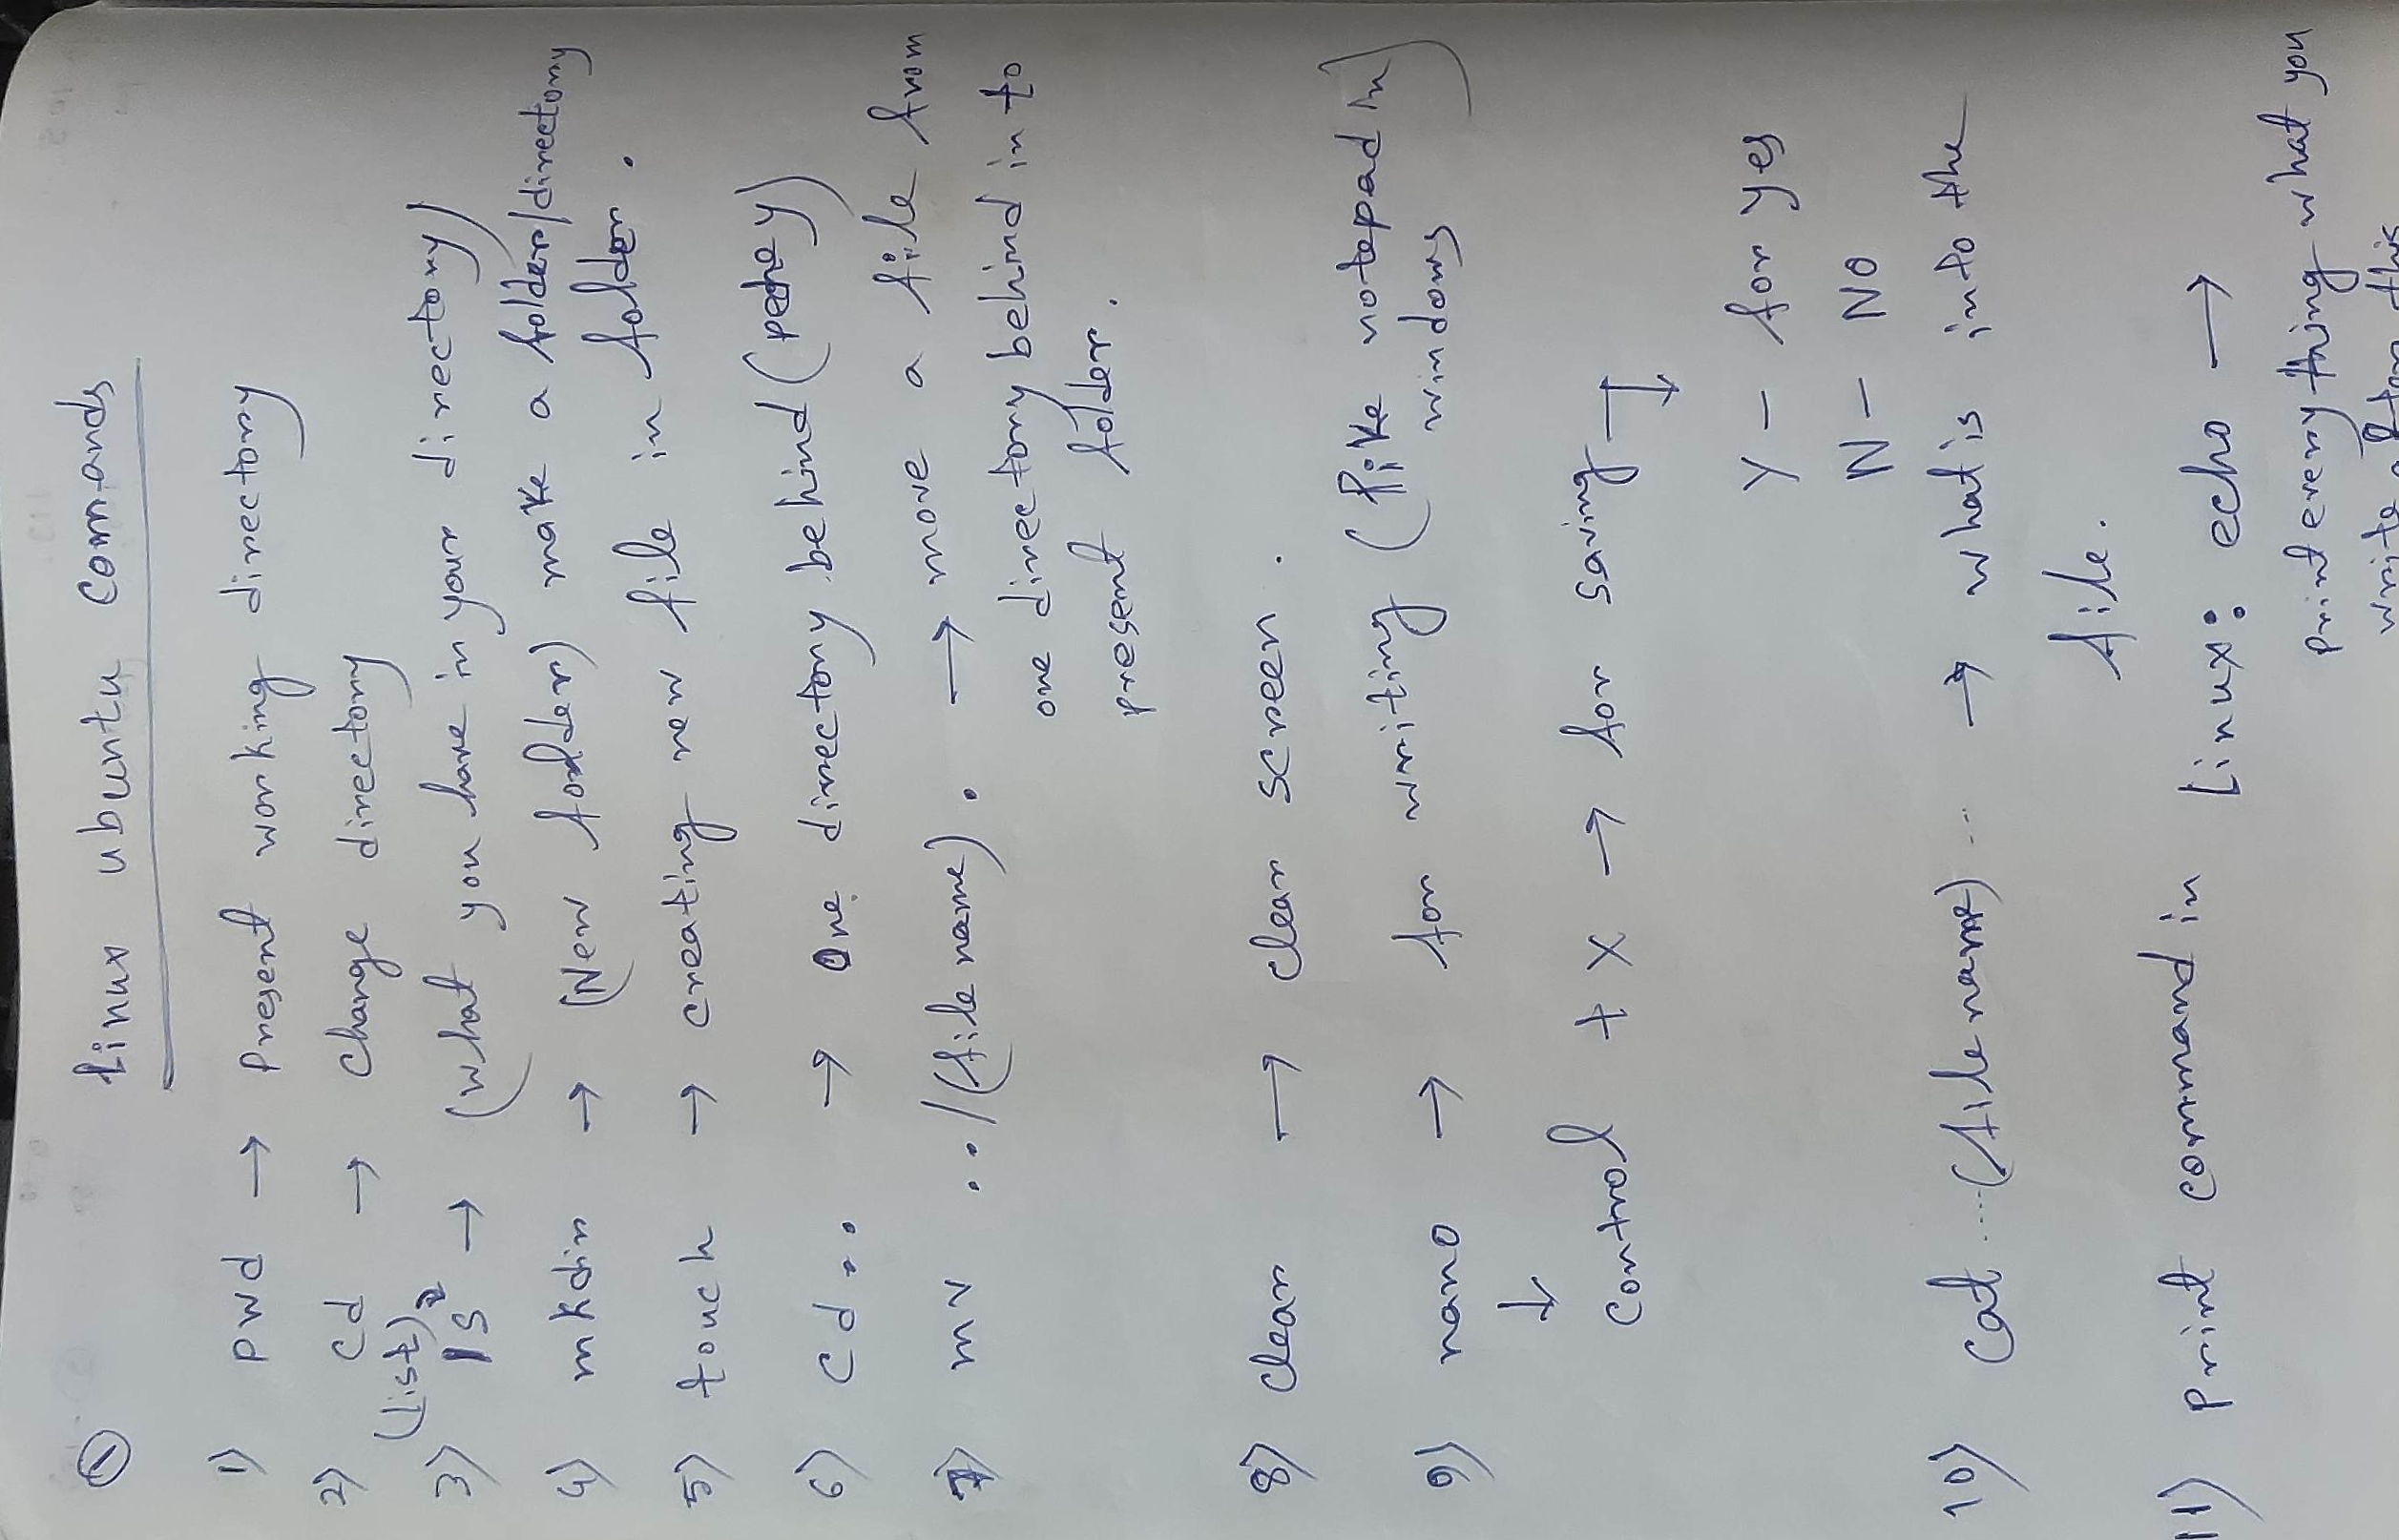 ① linux ubuntu comands
1) pwd → Present working directory
2) cd → change directory
(list)
3) ls → (what you have in your directory)
4) mkdir → (New foolder) make a folder/directory
5) touch → creating new file in folder.
6) cd.. → One directory behind (pechey)
7) mv ../(file name) . → move a file from
one directory behind in to
present folder.
8) clear → clear screen.
9) nano → for writing (like notepad in
windows)
↓
control + x → for saving
↓
Y – for yes
N – NO
10) cat ....(file name) ... → what is into the
file.
11) Print command in Linux: echo →
print every thing what you
write after this